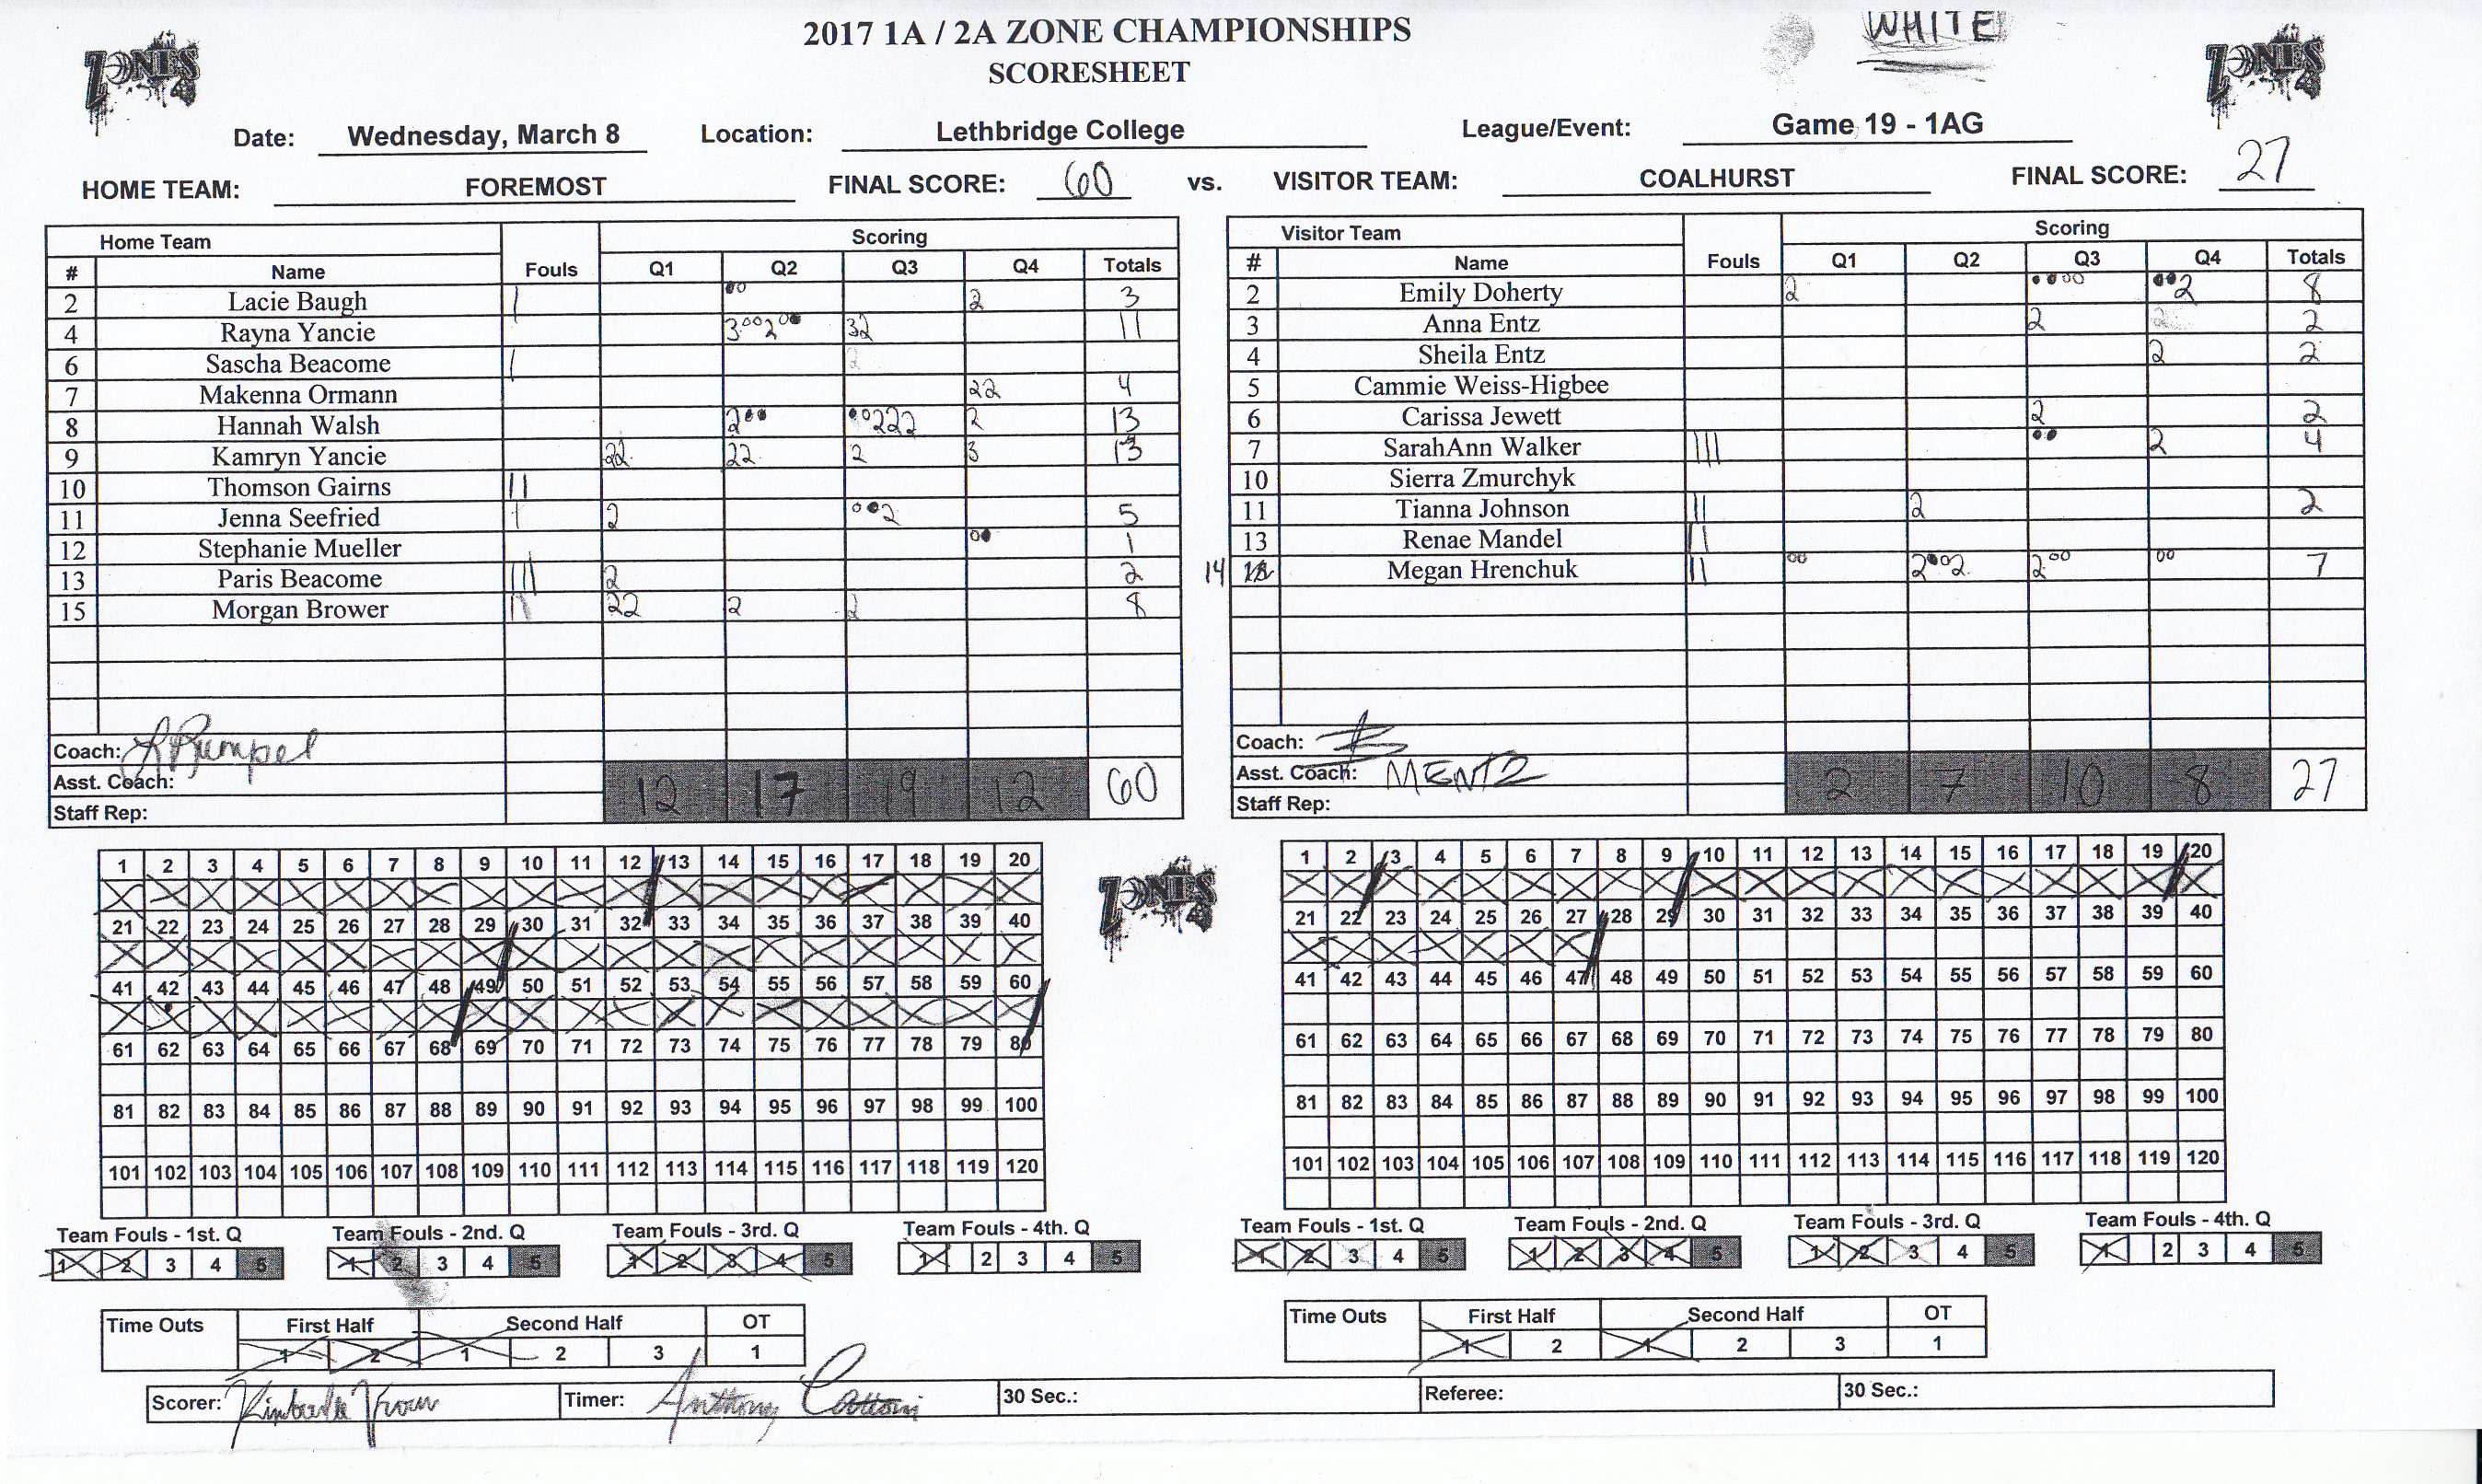 2017 1A / 2A ZONE CHAMPIONSHIPS
WHITE
SCORESHEET
ZONES ZONES
Date: Wednesday, March 8 Location: Lethbridge College League/Event: Game 19 - 1AG
HOME TEAM: FOREMOST FINAL SCORE: 60 vs. VISITOR TEAM: COALHURST FINAL SCORE: 27
Home Team Scoring
# Name Fouls Q1 Q2 Q3 Q4 Totals
2 Lacie Baugh 2 3
4 Rayna Yancie 3 2 32 11
6 Sascha Beacome
7 Makenna Ormann 22 4
8 Hannah Walsh 2 222 2 13
9 Kamryn Yancie 22 22 2 3 13
10 Thomson Gairns
11 Jenna Seefried 2 2 5
12 Stephanie Mueller 1
13 Paris Beacome 2 2
15 Morgan Brower 22 2 2 8
Coach: L Rumpel
Asst. Coach:
Staff Rep:
12 17 19 12 60
Visitor Team Scoring
# Name Fouls Q1 Q2 Q3 Q4 Totals
2 Emily Doherty 2 2 8
3 Anna Entz 2 2
4 Sheila Entz 2 2
5 Cammie Weiss-Higbee
6 Carissa Jewett 2 2
7 SarahAnn Walker 2 4
10 Sierra Zmurchyk
11 Tianna Johnson 2 2
13 Renae Mandel
14 Megan Hrenchuk 2 2 2 7
Coach:
Asst. Coach: MENTZ
Staff Rep:
2 7 10 8 27
1 2 3 4 5 6 7 8 9 10 11 12 13 14 15 16 17 18 19 20
21 22 23 24 25 26 27 28 29 30 31 32 33 34 35 36 37 38 39 40
41 42 43 44 45 46 47 48 49 50 51 52 53 54 55 56 57 58 59 60
61 62 63 64 65 66 67 68 69 70 71 72 73 74 75 76 77 78 79 80
81 82 83 84 85 86 87 88 89 90 91 92 93 94 95 96 97 98 99 100
101 102 103 104 105 106 107 108 109 110 111 112 113 114 115 116 117 118 119 120
ZONES
1 2 3 4 5 6 7 8 9 10 11 12 13 14 15 16 17 18 19 20
21 22 23 24 25 26 27 28 29 30 31 32 33 34 35 36 37 38 39 40
41 42 43 44 45 46 47 48 49 50 51 52 53 54 55 56 57 58 59 60
61 62 63 64 65 66 67 68 69 70 71 72 73 74 75 76 77 78 79 80
81 82 83 84 85 86 87 88 89 90 91 92 93 94 95 96 97 98 99 100
101 102 103 104 105 106 107 108 109 110 111 112 113 114 115 116 117 118 119 120
Team Fouls - 1st. Q Team Fouls - 2nd. Q Team Fouls - 3rd. Q Team Fouls - 4th. Q
1 2 3 4 5 1 2 3 4 5 1 2 3 4 5 1 2 3 4 5
Team Fouls - 1st. Q Team Fouls - 2nd. Q Team Fouls - 3rd. Q Team Fouls - 4th. Q
1 2 3 4 5 1 2 3 4 5 1 2 3 4 5 1 2 3 4 5
Time Outs First Half Second Half OT
1 2 1 2 3 1
Time Outs First Half Second Half OT
1 2 1 2 3 1
Scorer: Timer: Anthony 30 Sec.: Referee: 30 Sec.: